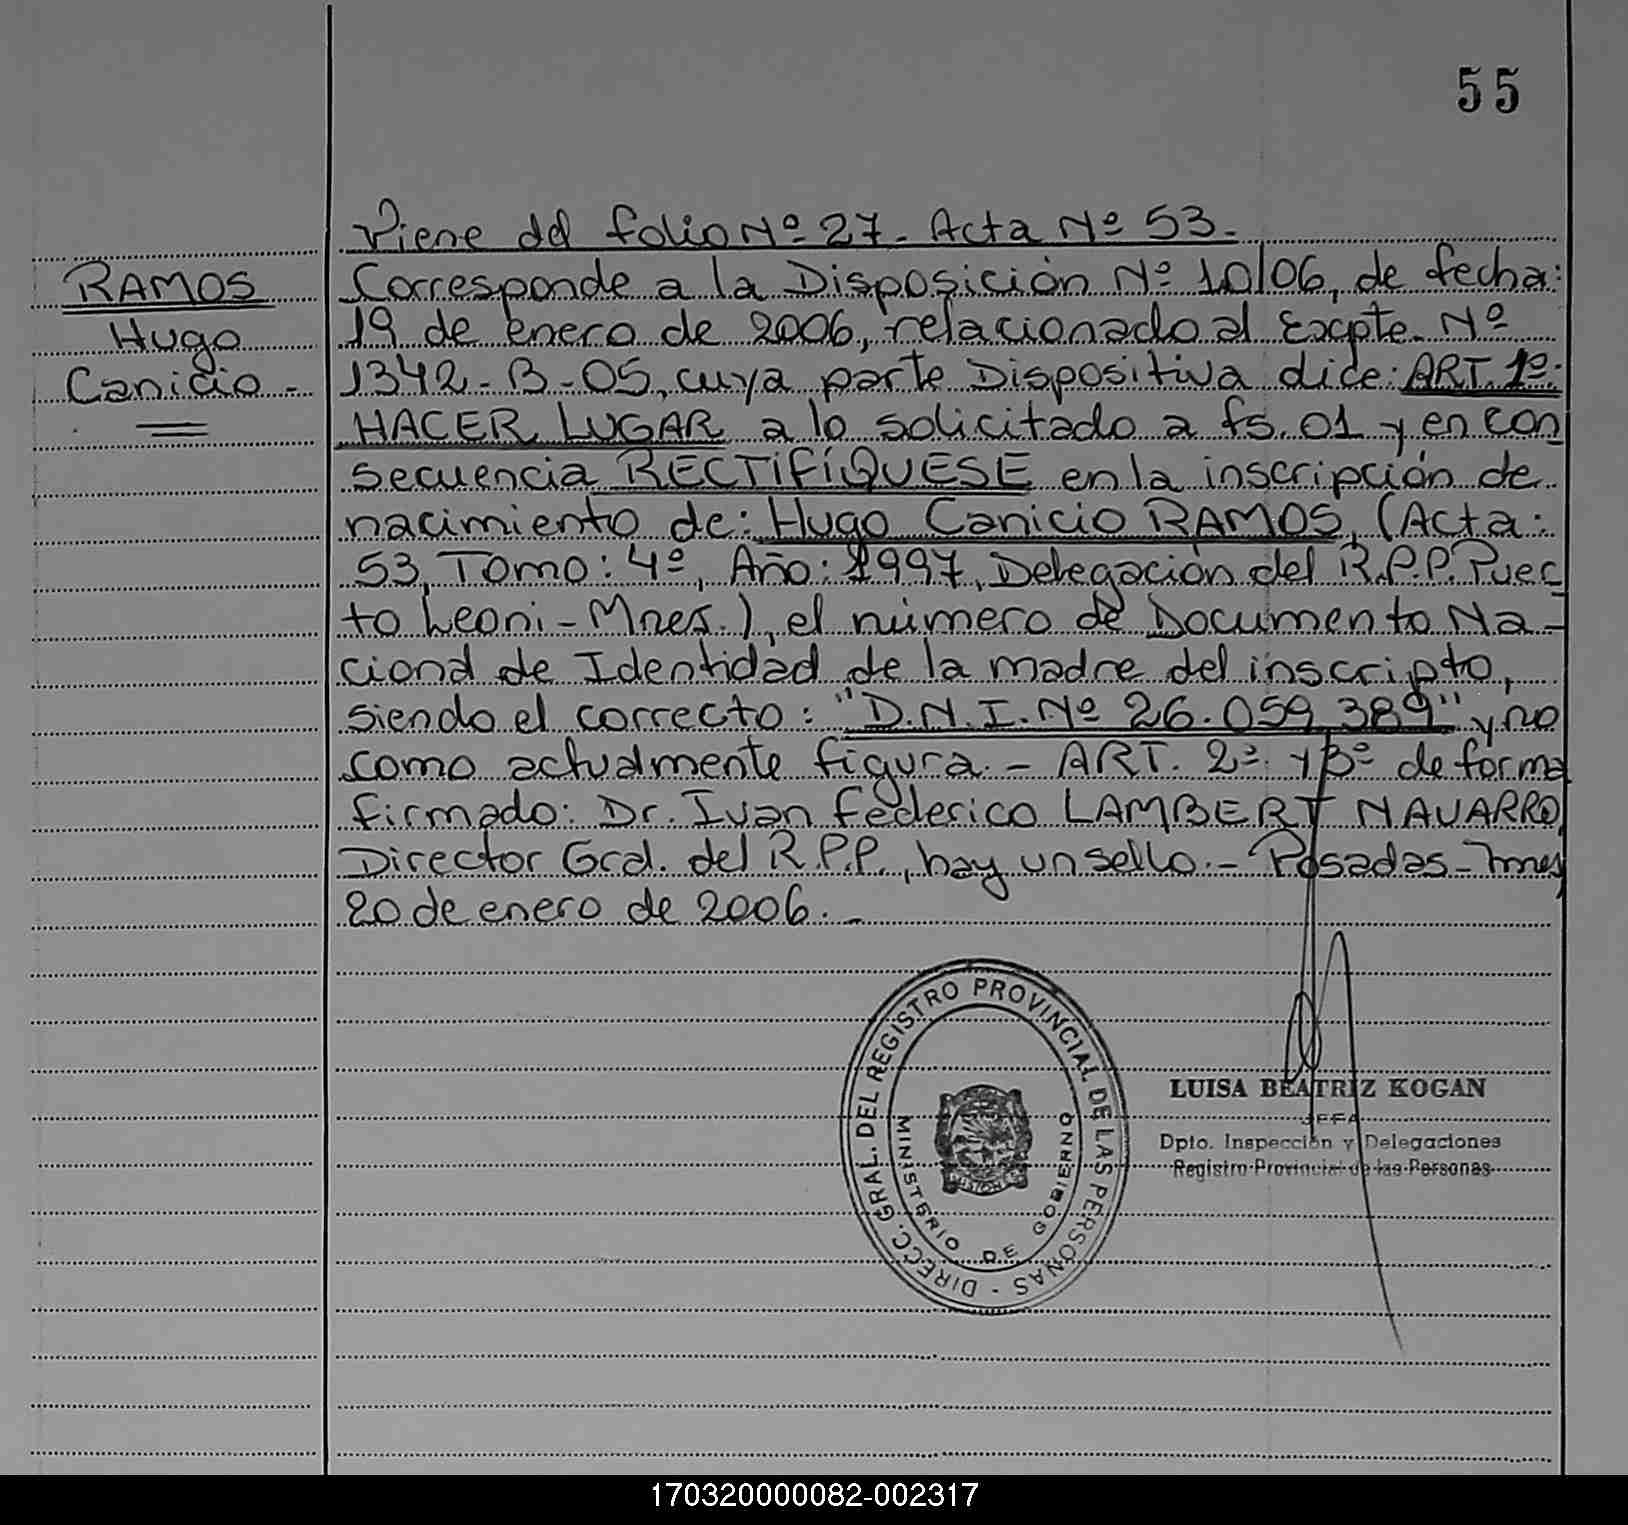 55
Viene del folio Nº 27. Acta Nº 53.
RAMOS
Hugo
Canicio -
Corresponde a la Disposición Nº 10/06, de fecha:
19 de enero de 2006, relacionado al Excpte. Nº
1342-B-05, cuya parte Dispositiva dice: ART. 1º:
HACER LUGAR a lo solicitado a fs. 01 y en con
secuencia RECTIFÍQUESE en la inscripción de
nacimiento de: Hugo Canicio RAMOS, (Acta:
53, Tomo: 4º, Año: 1997, Delegación del R.P.P. Puer
to Leoni - Mnes.), el número de Documento Na-
cional de Identidad de la madre del inscripto,
siendo el correcto: "D.N.I. Nº 26.059.389" y no
como actualmente figura. - ART. 2º y 3º de forma
firmado: Dr. Ivan Federico LAMBERT NAVARRO,
Director Gral. del R.P.P., hay un sello. - Posadas - Mnes,
20 de enero de 2006. -
DIRECC. GRAL. DEL REGISTRO PROVINCIAL DE LAS PERSONAS -
MINISTERIO DE GOBIERNO
MISIONES
LUISA BEATRIZ KOGAN
JEFA
Dpto. Inspección y Delegaciones
Registro Provincial de las Personas
170320000082-002317